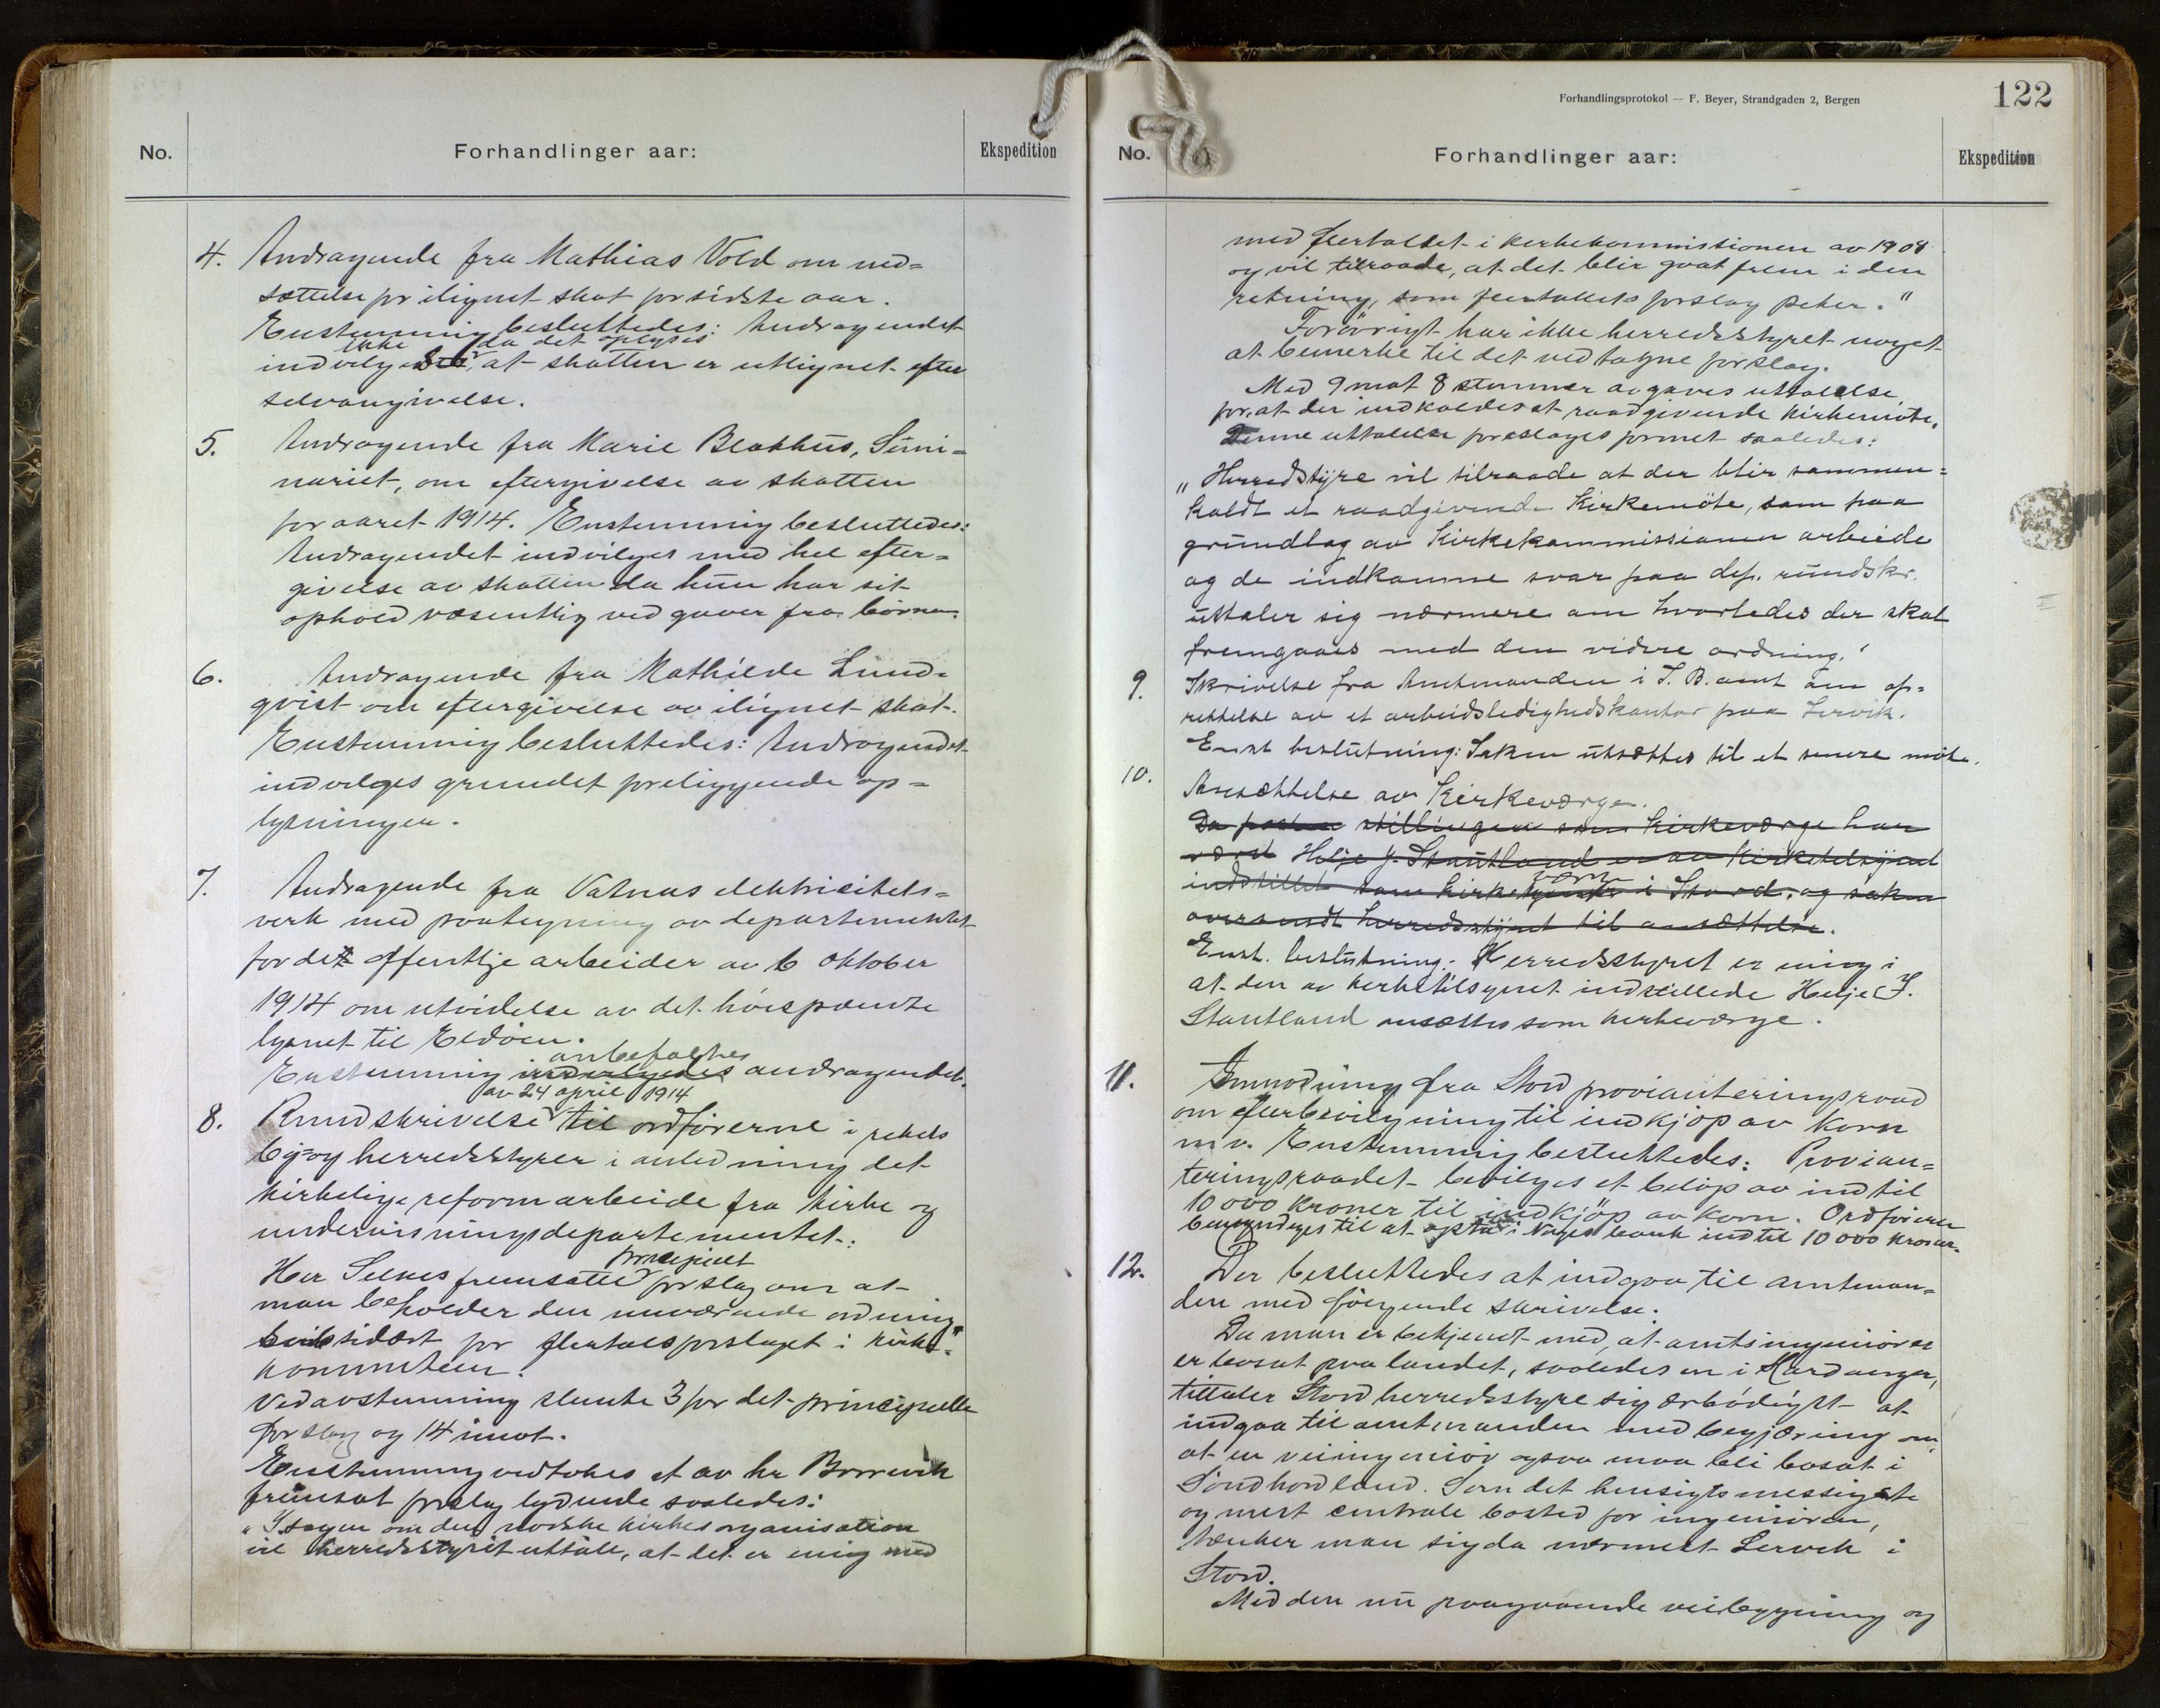 No.
Forhandlinger aar:
Ekspedition
4. Andragende fra Mathias Vold om ned=
sættelse for ilignet skat for sidste aar.
Enstemmig besluttedes: Andragendet
ikke da det oplyses
indvilges, at skatten er utlignet efter
selvangivelse.
5. Andragende fra Marie Blokhus, Simi-
nariet, om eftergivelse av skatten
for aaret 1914. Enstemmig besluttedes:
Andragendet indvilges med hel efter=
givelse av skatten da hun har sit
ophold væsentlig ved gaver fra børnene.
6. Andragende fra Mathilde Lund=
qvist om eftergivelse av ilignet skat.
Enstemmig besluttedes: Andragendet
indvilges grundet foreliggende op=
lysninger.
7. Andragende fra Vatnas elektricitets=
verk med paategning av departementet
for de offentlige arbeider av 6 oktober
1914 om utvidelse av det høispændte
lyanet til Eldøen.
anbefaltes
Enstemmig indvilgedes andragendet.
av 24 april 1914
8. Rundskrivelse til ordførerne i rikets
by= og herredsstyrer i anledning det
kirkelige reformarbeide fra kirke og
undervisningsdepartementet.
principielt
Her Selnes fremsatte forslag om at
man beholder den nuværende ordning
subsidært for flertalsforslaget i kirke=
komiteen.
Ved avstemning stemte 3 for det principielle
forslag og 14 imot.
Enstemmig vedtokes et av hr Borrevik
fremsat forslag lydende saaledes:
"I sagen om den norske kirkes organisation
vil herredsstyret uttale, at det er enig med
Forhandlingsprotokol — F. Beyer, Strandgaden 2, Bergen
122
No.
Forhandlinger aar:
Ekspedition
med flertallet i kirkekommissionen av 1908
og vil tilraade, at det blir gaat frem i den
retning, som flertallets forslag peker."
Forøvrigt har ikke herredsstyret noget
at bemerke til det vedtagne forslag.
Med 9 mot 8 stemmer avgaves uttalelse
for, at der indkaldes at raadgivende kirkemøte.
Denne uttalelse foreslages formet saaledes:
"Herredstyre vil tilraade at der blir sammen=
kaldt et raadgivende Kirkemöte, som paa
grundlag av Kirkekommissionen arbeide
og de indkomne svar paa dep. rundskr.
uttaler sig nærmere om hvorledes der skal
fremgaaes med den videre ordning."
9. Skrivelse fra Amtmanden i S. B. amt om op=
rettelse av et arbeidsledighedskontor paa Lervik.
Enst beslutning: Saken utsættes til et senere möte.
10. Ansættelse av Kirkeværge.
Da posten stillingen som kirkeværge har
været Helje J. Stautland er av Kirketilsynet
værge
indstillet som kirketjener i Stord, og saken
oversendt herredsstyret til ansættelse.
Enst. beslutning: Herredsstyret er enig i
at den av kirketilsynet indstillede Helje J.
Stautland ansættes som kirkeværge.
11. Anmodning fra Stord provianteringsraad
om efterbevilgning til indkjøp av korn
m.v. Enstemmig besluttedes: Provian=
teringsraadet bevilges et beløp av indtil
10 000 kroner til indkjöp av korn. Ordføreren
bemyndiges til at opta i Norges bank indtil 10 000 kroner.
12. Der besluttedes at indgaa til amtman=
den med følgende skrivelse.
Da man er bekjendt med, at amtsingeniører
er bosat paa landet, saaledes en i Hardanger,
tillater Stord herredsstyre sig ærbødigst at
indgaa til amtmanden med begjæring om,
at en veiingeniør ogsaa maa bli bosat i
Søndhordland. Som det hensigtsmessigste
og mest centrale bosted for ingeniøren,
tænker man sig da nærmest Lervik i
Stord.
Med den nu paagaaende veibygning og